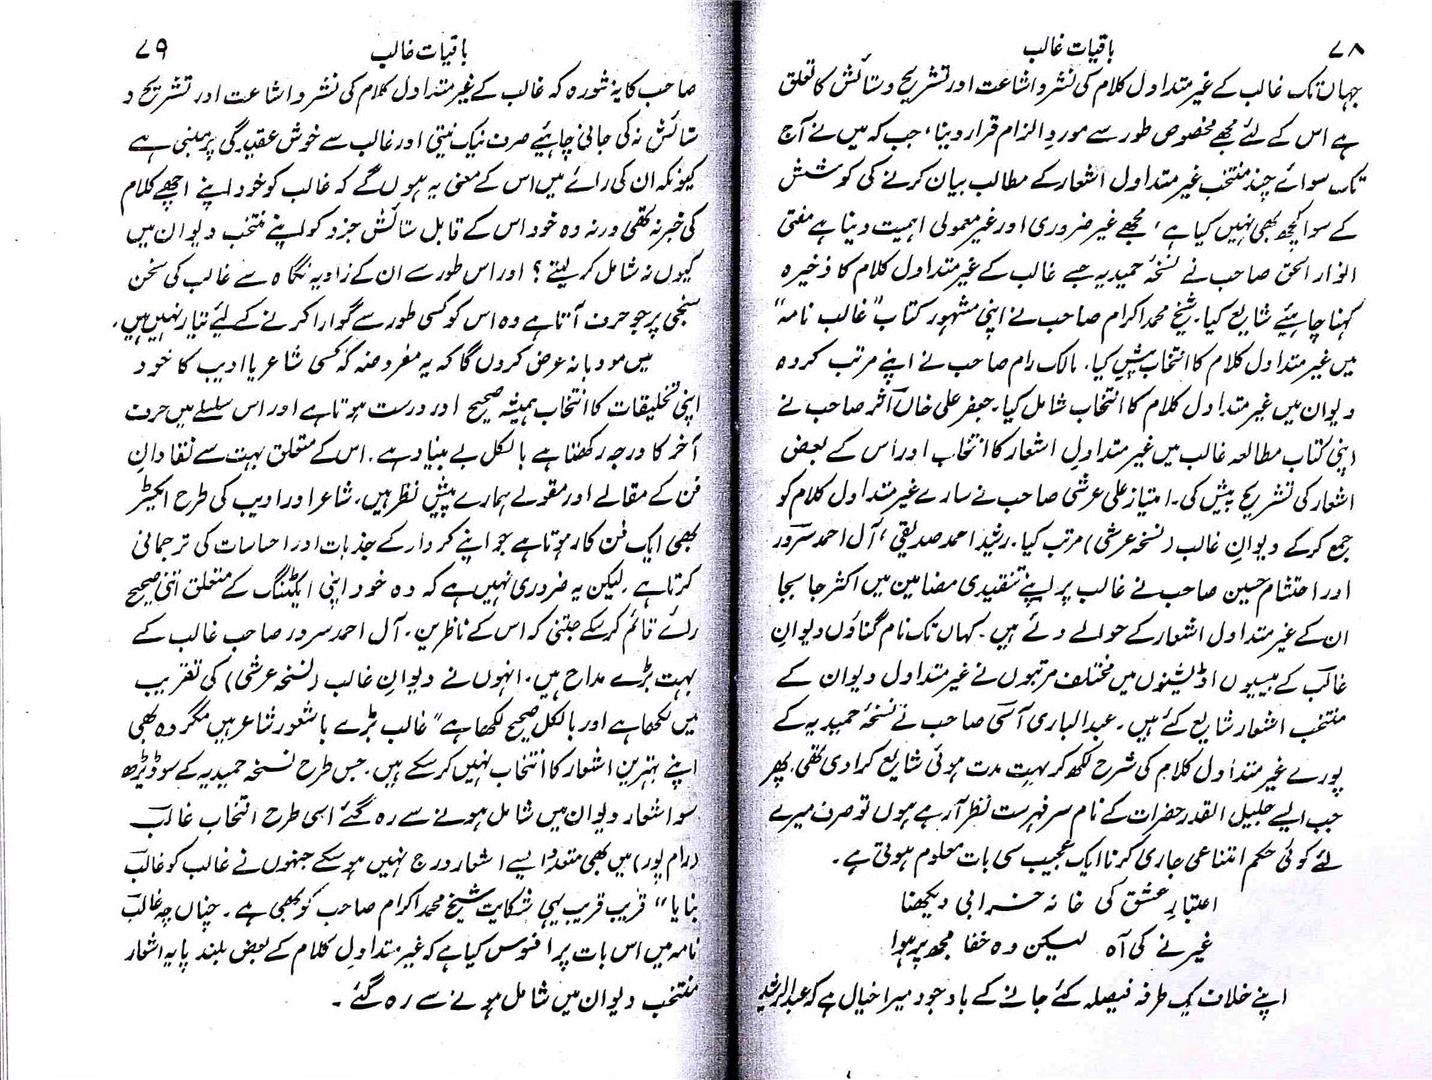 ۷۸
باقیات غالب
جہاں تک غالب کے غیر متداول کلام کی نشر و اشاعت اور تشریح و ستائش کا تعلق
ہے اس کے لئے مجھے مخصوص طور سے مورد الزام قرار دینا، جب کہ میں نے آج
تک سوائے چند منتخب غیر متداول اشعار کے مطالب بیان کرنے کی کوشش
کے سوا کچھ بھی نہیں کیا ہے، مجھے غیر ضروری اور غیر معمولی اہمیت دینا ہے مفتی
انوار الحق صاحب نے نسخۂ حمیدیہ جسے غالب کے غیر متداول کلام کا ذخیرہ
کہنا چاہیئے شایع کیا۔ شیخ محمد اکرام صاحب نے اپنی مشہور کتاب "غالب نامہ"
میں غیر متداول کلام کا انتخاب پیش کیا۔ مالک رام صاحب نے اپنے مرتب کردہ
دیوان میں غیر متداول کلام کا انتخاب شامل کیا۔ جعفر علی خاں آثر صاحب نے
اپنی کتاب مطالعہ غالب میں غیر متداول اشعار کا انتخاب اور اس کے بعض
اشعار کی تشریح پیش کی۔ امتیاز علی عرشی صاحب نے سارے غیر متداول کلام کو
جمع کر کے دیوانِ غالب (نسخہ عرشی) مرتب کیا۔ رشید احمد صدیقی، آل احمد سرور
اور احتشام حسین صاحب نے غالب پر اپنے تنقیدی مضامین میں اکثر جا بجا
ان کے غیر متداول اشعار کے حوالے دئے ہیں۔ کہاں تک نام گناؤں دیوانِ
غالب کے بیسیوں اڈیشنوں میں مختلف مرتبوں نے غیر متداول دیوان کے
منتخب اشعار شایع کئے ہیں۔ عبدالباری آسی صاحب نے نسخۂ حمیدیہ کے
پورے غیر متداول کلام کی شرح لکھ کر بہت مدت ہوئی شایع کرا دی تھی۔ پھر
جب ایسے جلیل القدر حضرات کے نام سرفہرست نظر آ رہے ہوں تو صرف میرے
لئے کوئی حکم امتناعی جاری کرنا ایک عجیب سی بات معلوم ہوتی ہے۔
اعتبارِ عشق کی خانہ خرابی دیکھنا
غیر نے کی آہ لیکن وہ خفا مجھ پر ہوا
اپنے خلاف یک طرفہ فیصلہ کئے جانے کے باوجود میرا خیال ہے کہ عبدالرشید
۷۹
باقیات غالب
صاحب کا یہ مشورہ کہ غالب کے غیر متداول کلام کی نشر و اشاعت اور تشریح و
ستائش نہ کی جانی چاہیئے صرف نیک نیتی اور غالب سے خوش عقیدگی پر مبنی ہے
کیونکہ ان کی رائے میں اس کے معنی یہ ہوں گے کہ غالب کو خود اپنے اچھے کلام
کی خبر نہ تھی ورنہ وہ خود اس کے قابل ستائش جزو کو اپنے منتخب دیوان میں
کیوں نہ شامل کر لیتے؟ اور اس طور سے ان کے زاویہ نگاہ سے غالب کی سخن
سنجی پر جو حرف آتا ہے وہ اس کو کسی طور سے گوارا کرنے کے لئے تیار نہیں ہیں۔
میں مودبانہ عرض کروں گا کہ یہ مفروضہ کہ کسی شاعر یا ادیب کا خود
اپنی تخلیقات کا انتخاب ہمیشہ صحیح اور درست ہوتا ہے اور اس سلسلے میں حرف
آخر کا درجہ رکھتا ہے بالکل بے بنیاد ہے۔ اس کے متعلق بہت سے نقادانِ
فن کے مقالے اور مقولے ہمارے پیش نظر ہیں۔ شاعر اور ادیب کی طرح ایکٹر
بھی ایک فن کار ہوتا ہے جو اپنے کردار کے جذبات اور احساسات کی ترجمانی
کرتا ہے۔ لیکن یہ ضروری نہیں ہے کہ وہ خود اپنی ایکٹنگ کے متعلق اتنی صحیح
رائے قائم کر سکے جتنی کہ اس کے ناظرین۔ آل احمد سرور صاحب غالب کے
بہت بڑے مداح ہیں۔ انہوں نے دیوانِ غالب (نسخہ عرشی) کی تقریب
میں لکھا ہے اور بالکل صحیح لکھا ہے "غالب بڑے باشعور شاعر ہیں مگر وہ بھی
اپنے بہترین اشعار کا انتخاب نہیں کر سکے ہیں۔ جس طرح نسخہ حمیدیہ کے سو ڈیڑھ
سو اشعار دیوان میں شامل ہونے سے رہ گئے اسی طرح انتخاب غالب
(رام پور) میں بھی متعدد ایسے اشعار درج نہیں ہو سکے جنہوں نے غالب کو غالب
بنایا" قریب قریب یہی شکایت شیخ محمد اکرام صاحب کو بھی ہے۔ چناں چہ غالب
نامہ میں اس بات پر افسوس کیا ہے کہ غیر متداول کلام کے بعض بلند پایہ اشعار
منتخب دیوان میں شامل ہونے سے رہ گئے۔